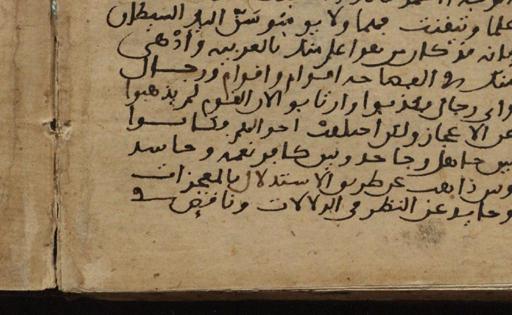 علما وتيقنت فهما ولا يوسوسن إليك الشيطان
بانه قد كان من هو اعلم منك بالعربيه وأدهى
منك في الفصاحه اقوام واقوام ورجال
ورجال فكذبوا وارتابوا لان القوم لم يذهبوا
عن الاعجاز ولكن اختلفت احوالهم فكانوا
بين جاهل وجاحد وبين كافر نعمه وحاسد
وبين ذاهب عن طريق الاستدلال بالمعجزات
وحايد عن النظر في الدلالات وناقص في